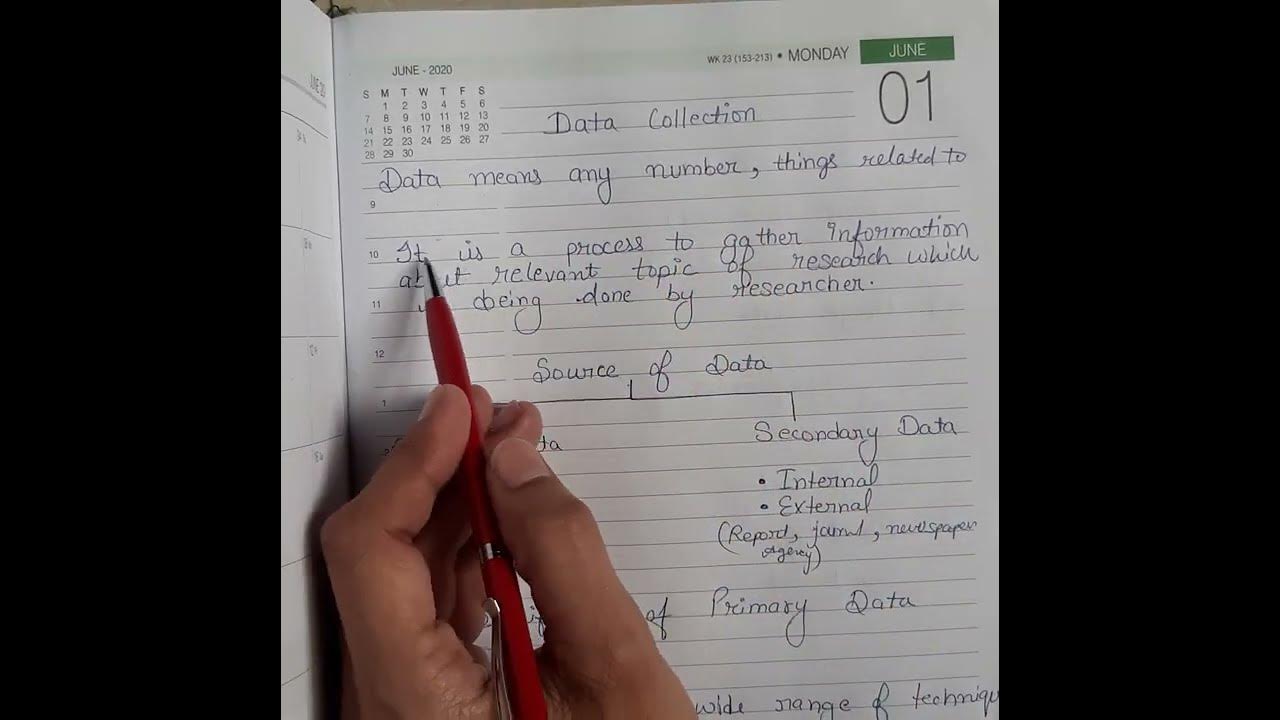 JUNE - 2020
WK 23 (153-213) • MONDAY
JUNE
01
S M T W T F S
1 2 3 4 5 6
7 8 9 10 11 12 13
14 15 16 17 18 19 20
21 22 23 24 25 26 27
28 29 30
Data Collection
Data means any number, things related to
9
10 It is a process to gather information
relevant topic of research which
11 being done by researcher.
12
Source of Data
1
Secondary Data
• Internal
• External
(Report, journl, newspaper
Agency)
of Primary Data
wide range of techniqu